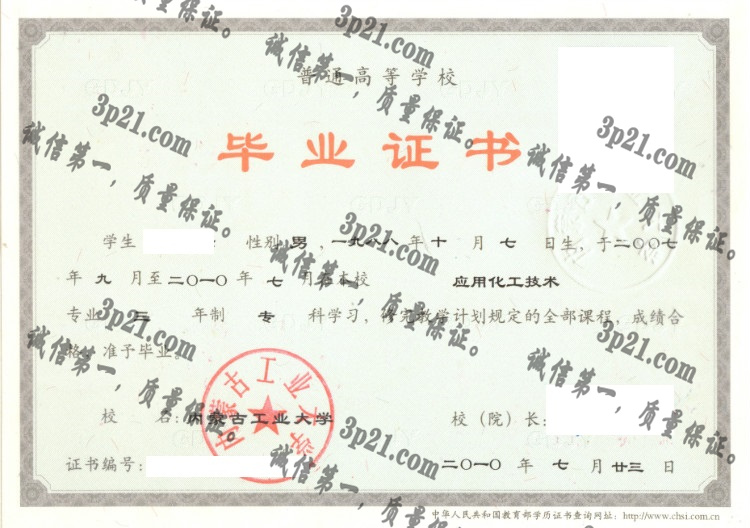 普通高等学校
毕业证书
学生 : 性别 男 , 一九八八 年 十 月 七 日生, 于二〇〇七
年 九 月至二〇一〇年 七 月在本校 应用化工技术
专业 三 年制 专 科学习, 修完教学计划规定的全部课程, 成绩合
格, 准予毕业。
校 名: 内蒙古工业大学
校（院）长:
证书编号:
二〇一〇 年 七 月 廿三 日
中华人民共和国教育部学历证书查询网址: http://www.chsi.com.cn
内蒙古工业大学
3p21.com
诚信第一，质量保证。
3p21.com
诚信第一，质量保证。
3p21.com
诚信第一，质量保证。
3p21.com
诚信第一，质量保证。
3p21.com
诚信第一，质量保证。
3p21.com
诚信第一，质量保证。
3p21.com
诚信第一，质量保证。